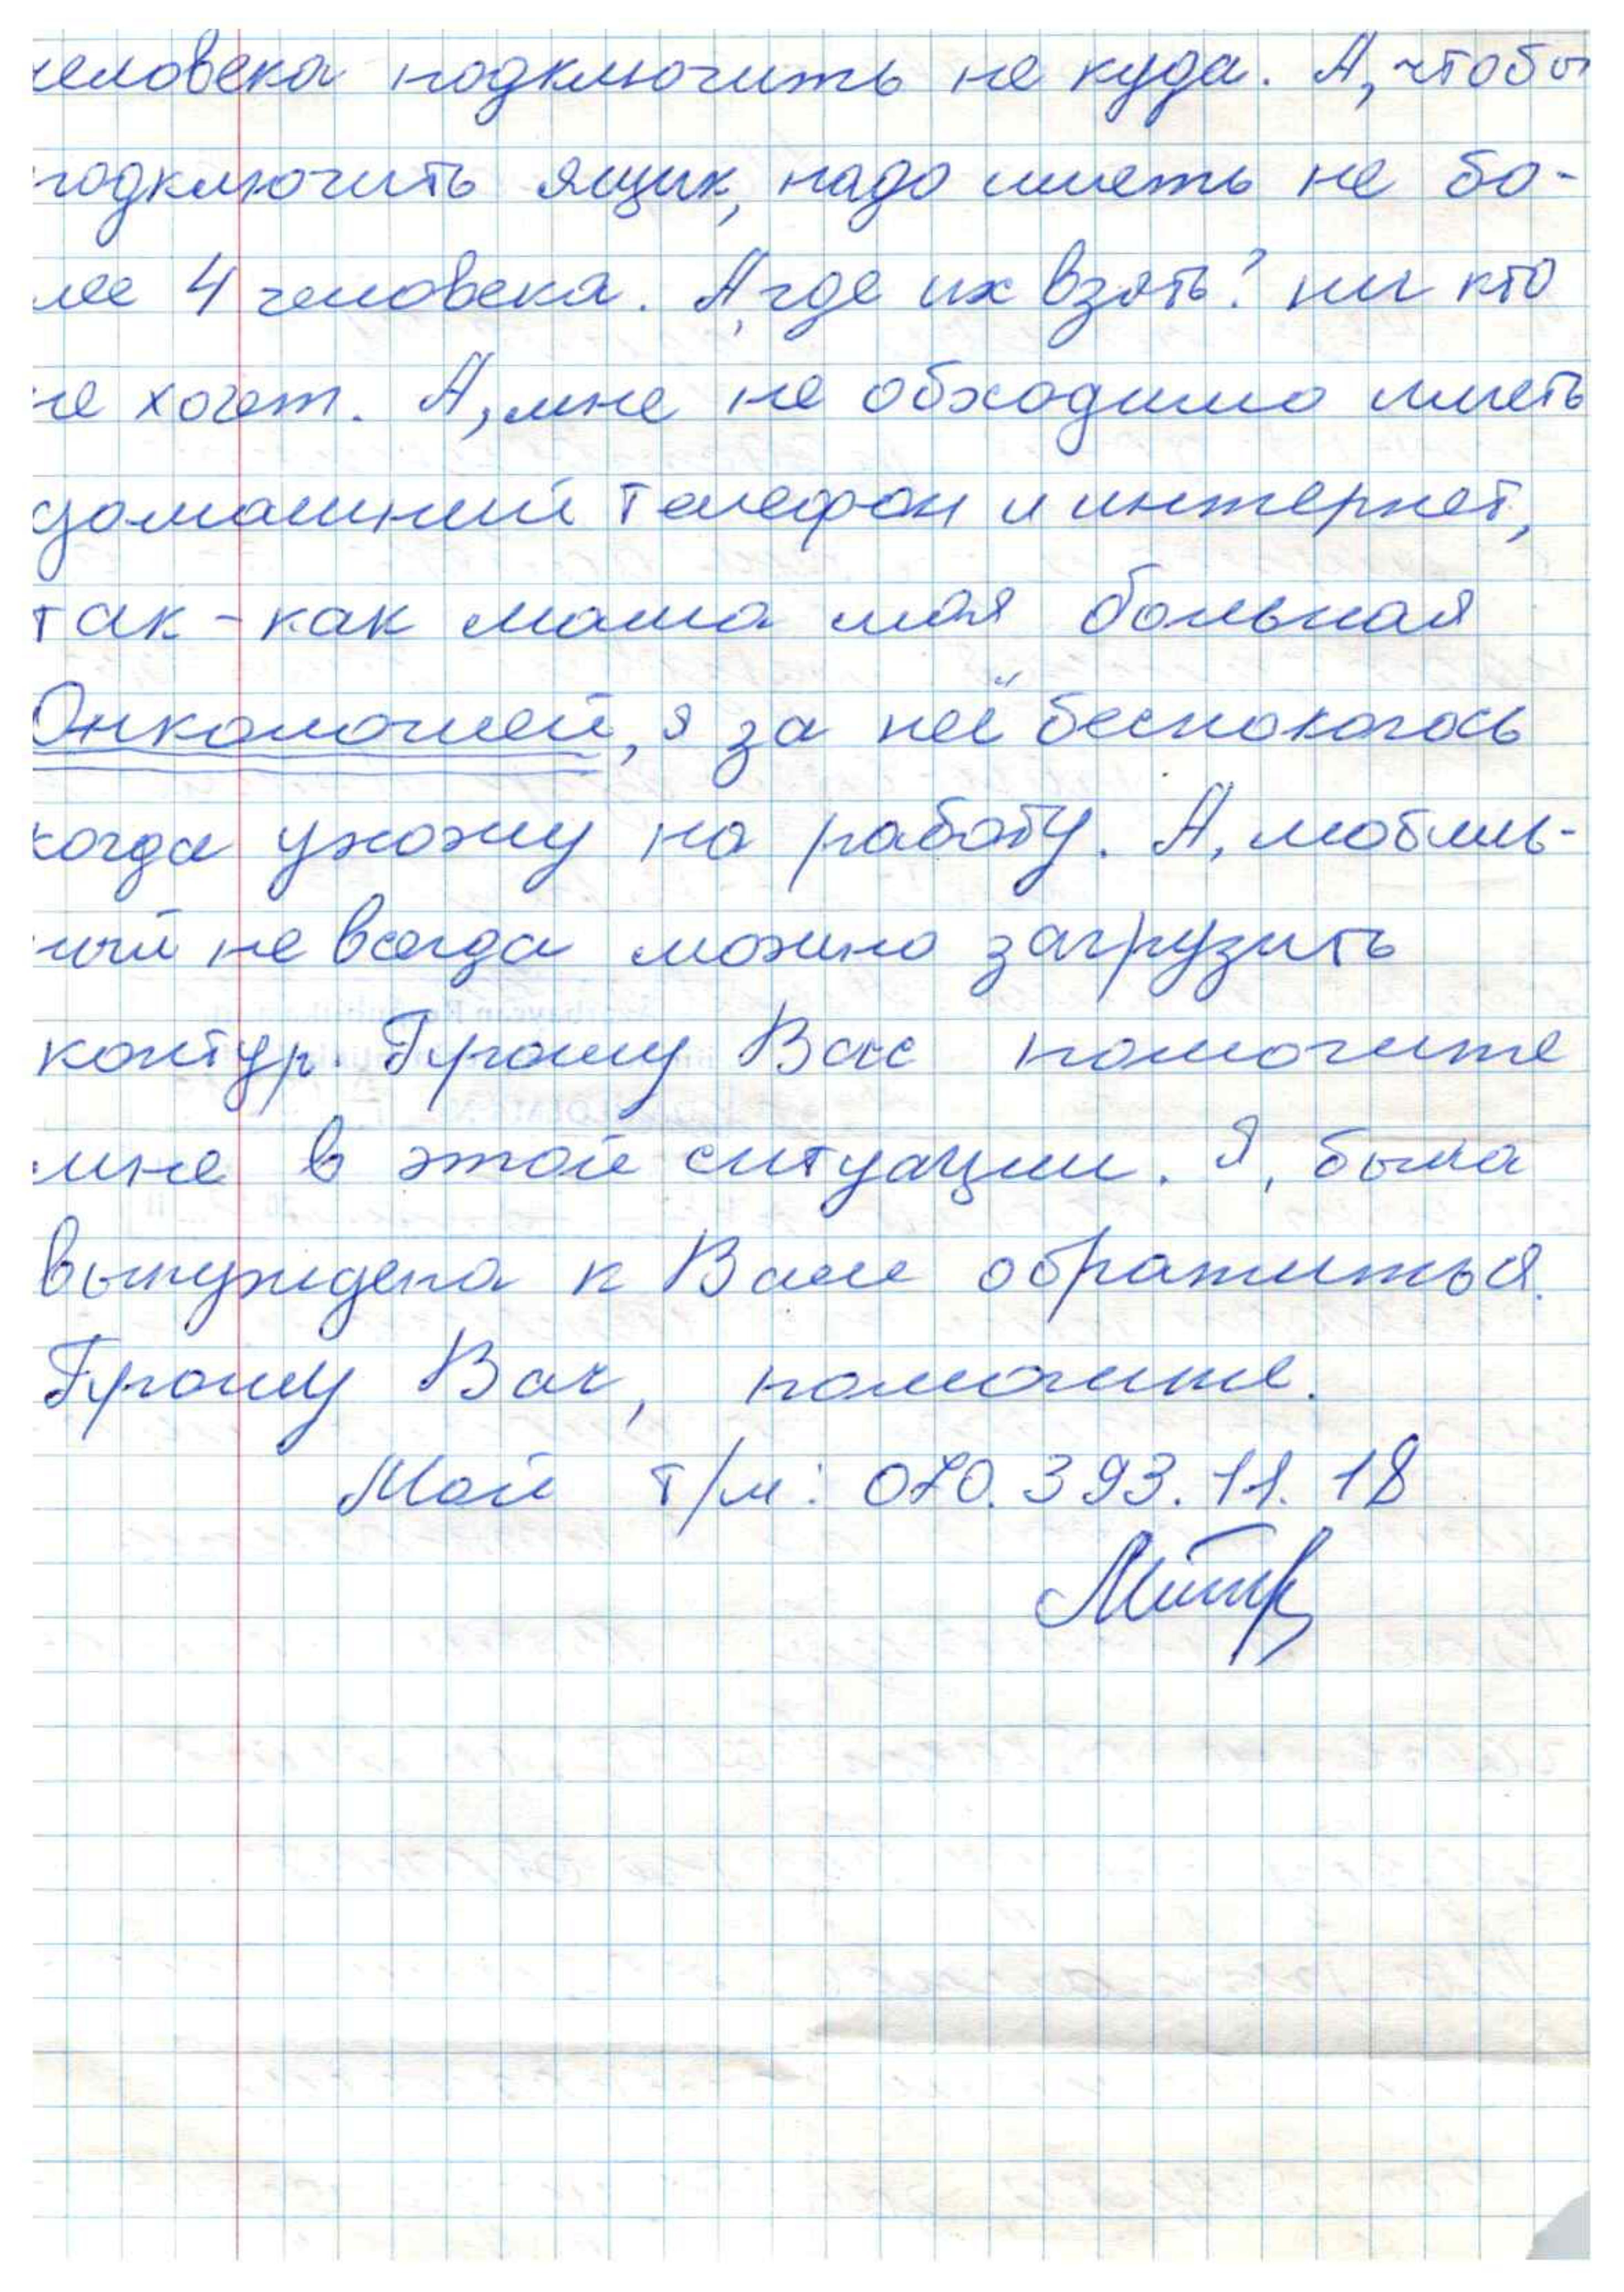 человека подключить не куда. А, чтобы
подключить ящик, надо иметь не бо-
лее 4 человека. А, где их взять? ни кто
не хочет. А, мне не обходимо иметь
домашний телефон и интернет,
так-как мама моя больная
Онкологией, я за неё беспокоюсь
когда ухожу на работу. А, мобиль-
ный не всегда можно загрузить
контур. Прошу Вас помогите
мне в этой ситуации. Я, была
вынуждена к Вам обратиться.
Прошу Вас, помогите.
Мой т/м: 070. 393. 11. 18